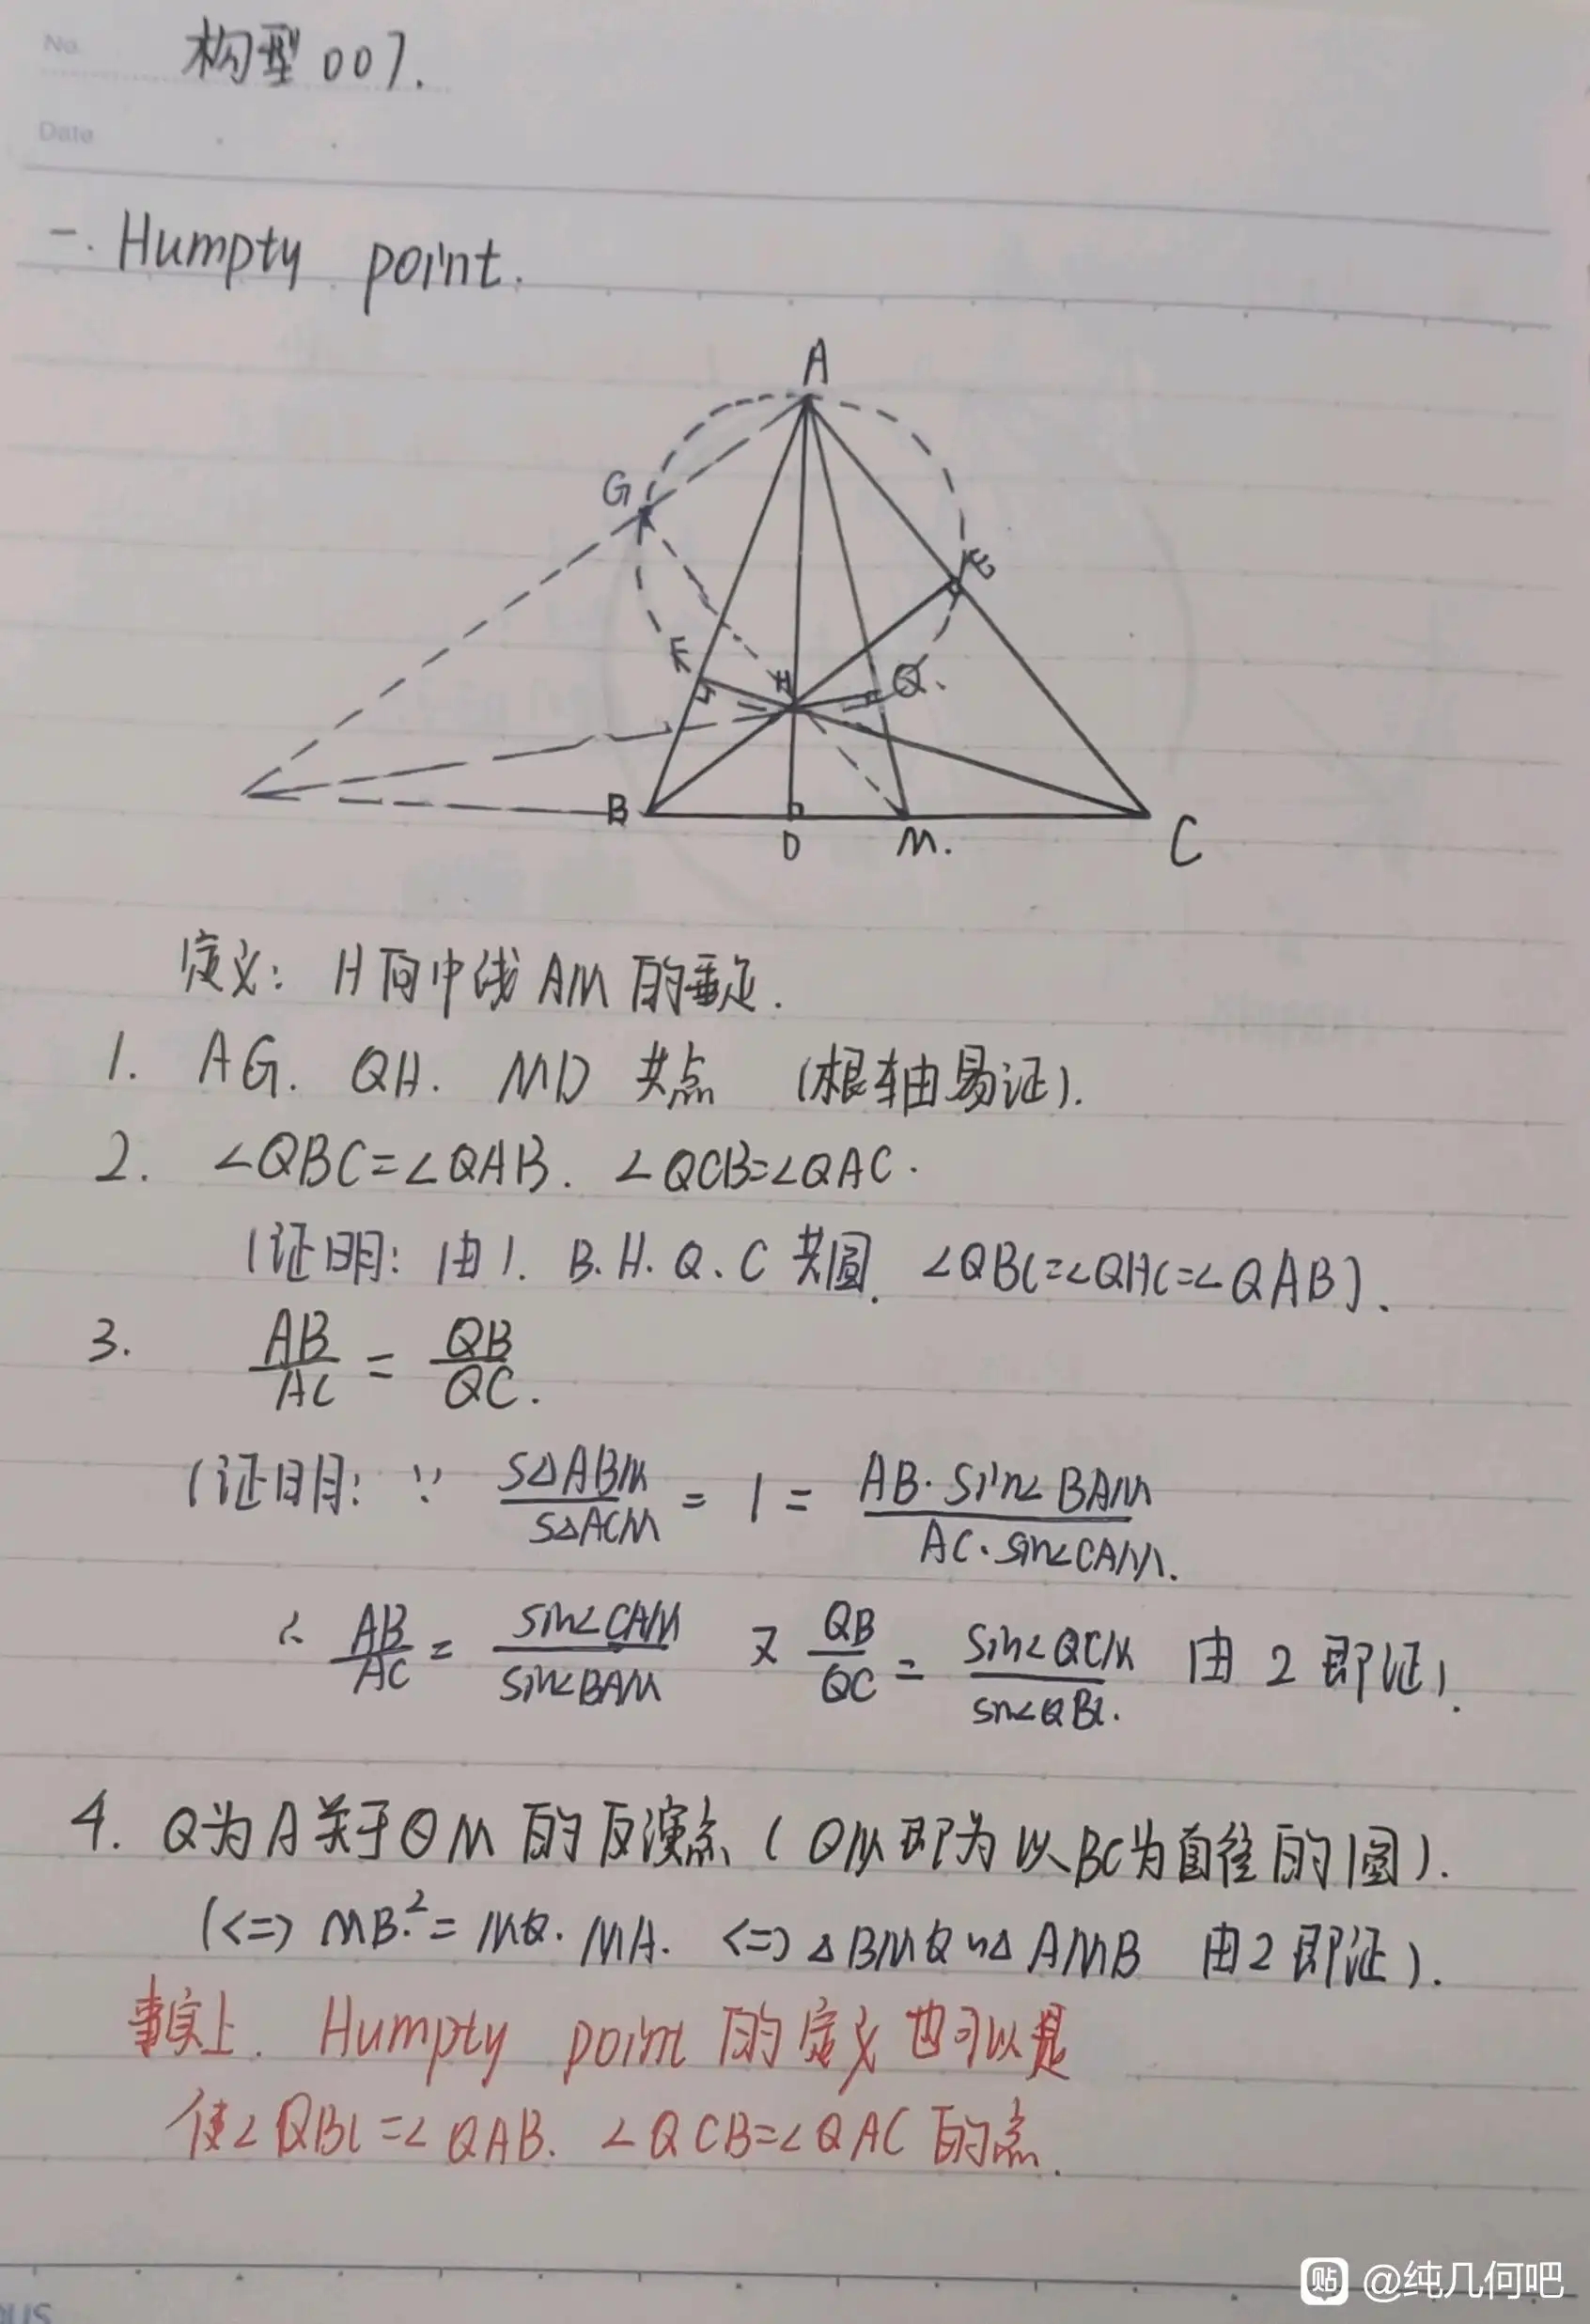 No.
构型007.
Date
一. Humpty point.
A
G
E
F
H
Q.
B
D
M.
C
定义: H向中线AM的垂足.
1. AG. QH. MD 共点 (根轴易证).
2. ∠QBC=∠QAB. ∠QCB=∠QAC.
(证明: 由1. B.H.Q.C共圆. ∠QBC=∠QHC=∠QAB).
3. AB/AC = QB/QC.
(证明: ∵ S△ABM/S△ACM = 1 = AB·sin∠BAM/AC·sin∠CAM.
∴ AB/AC = sin∠CAM/sin∠BAM 又 QB/QC = sin∠QCM/sin∠QBC. 由2即证).
4. Q为A关于⊙M的反演点 (⊙M即为以BC为直径的圆).
(<=> MB.²=MQ·MA. <=> △BMQ∽△AMB 由2即证).
事实上. Humpty point 的定义也可以是
使∠QBC=∠QAB. ∠QCB=∠QAC的点.
贴 @纯几何吧